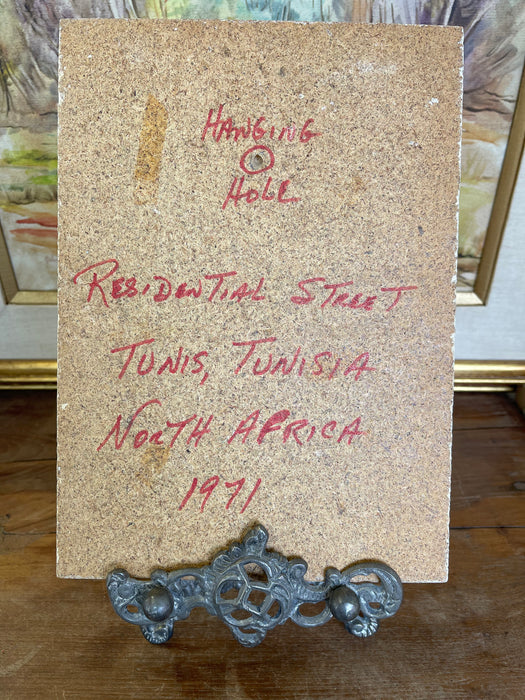 HANGING
HOLE
RESIDENTIAL STREET
TUNIS, TUNISIA
NORTH AFRICA
1971